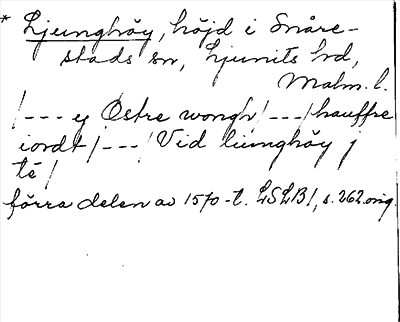 * Ljunghöy, höjd i Snåre-
stads sn, Ljunits hd,
Malm. l.
/--- ey Östre wongh/---/hauffre
iordt/---/Vid liunghöy j
té/
förra delen av 1570-t. LSLB1, s. 262. orig.